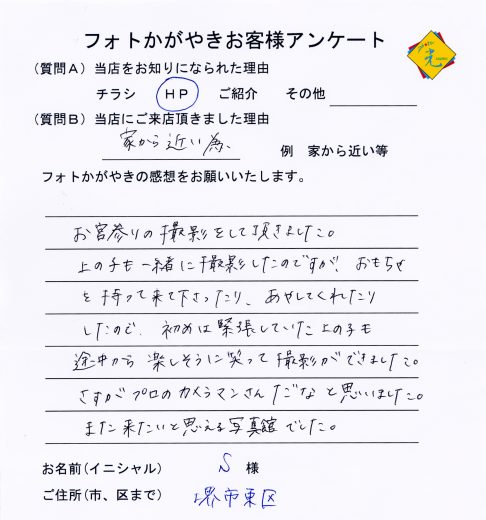 フォトかがやきお客様アンケート
光
(質問A)当店をお知りになられた理由
チラシ HP ご紹介 その他
(質問B)当店にご来店頂きました理由
家から近い為、 例 家から近い等
フォトかがやきの感想をお願いいたします。
お宮参りの撮影をして頂きました。
上の子も一緒に撮影したのですが、おもちゃ
を持って来て下さったり、あやしてくれたり
したので、初めは緊張していた上の子も
途中から楽しそうに笑って撮影ができました。
さすがプロのカメラマンさんだなと思いました。
また来たいと思える写真館でした。
お名前(イニシャル) S 様
ご住所(市、区まで) 堺市東区